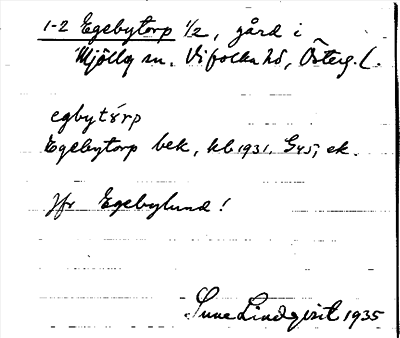 1-2 Egebytorp 1/2, gård i
Mjölby sn. Vifolka hd, Österg. L.
egbytórp
Egebytorp bek, kb 1931. G45, ek.
Jfr Egebylund!
Sune Lindqvist 1935